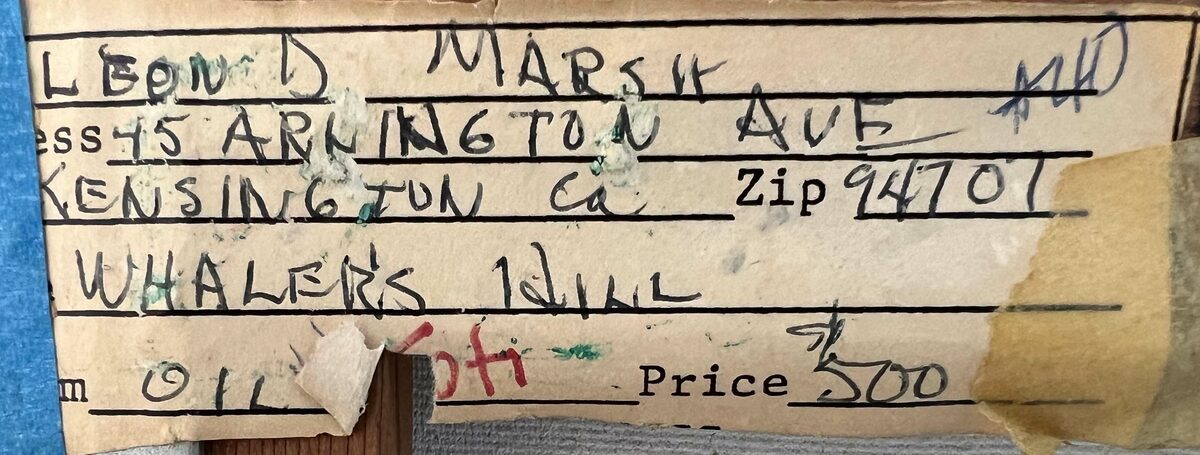 LEON D MARSH
ess 45 ARLINGTON AVE
KENSINGTON Ca Zip 94707
WHALER'S HILL
m OIL Price $500